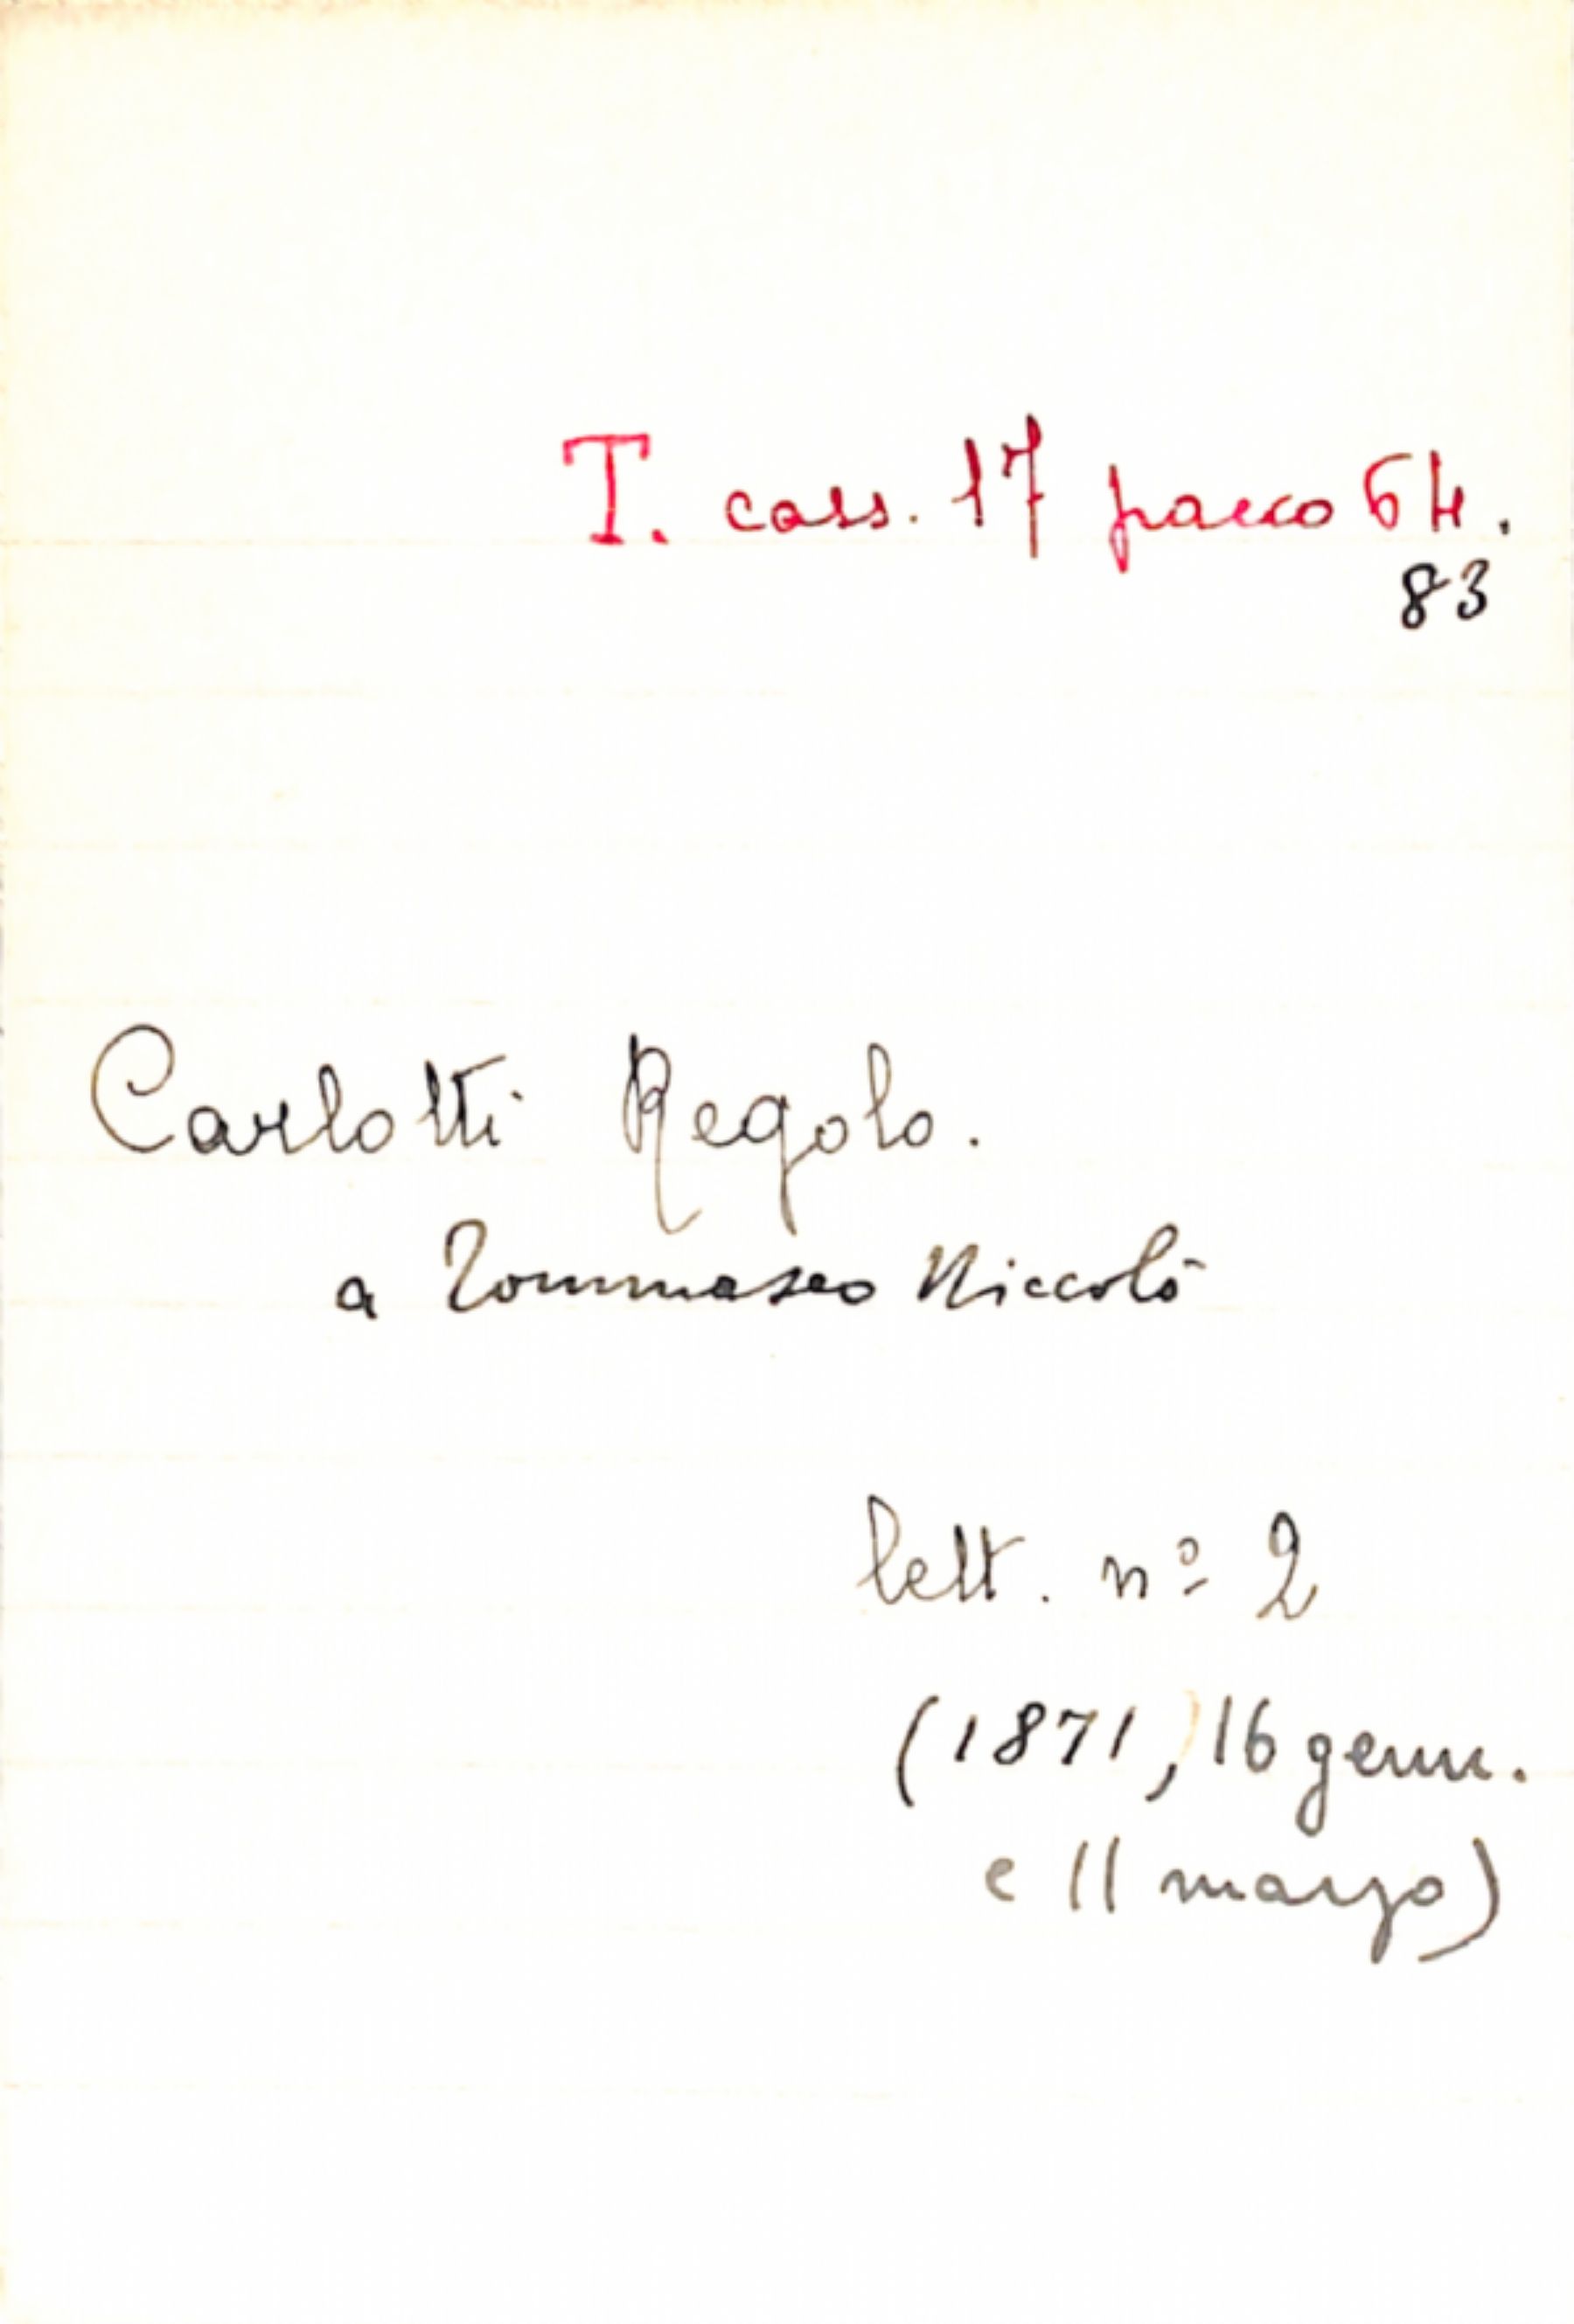 T. cass. 17 pacco 64.
83
Carlotti Regolo.
a Tommaseo Niccolò
lett. nº 2
(1871, 16 genn.
e 11 marzo)